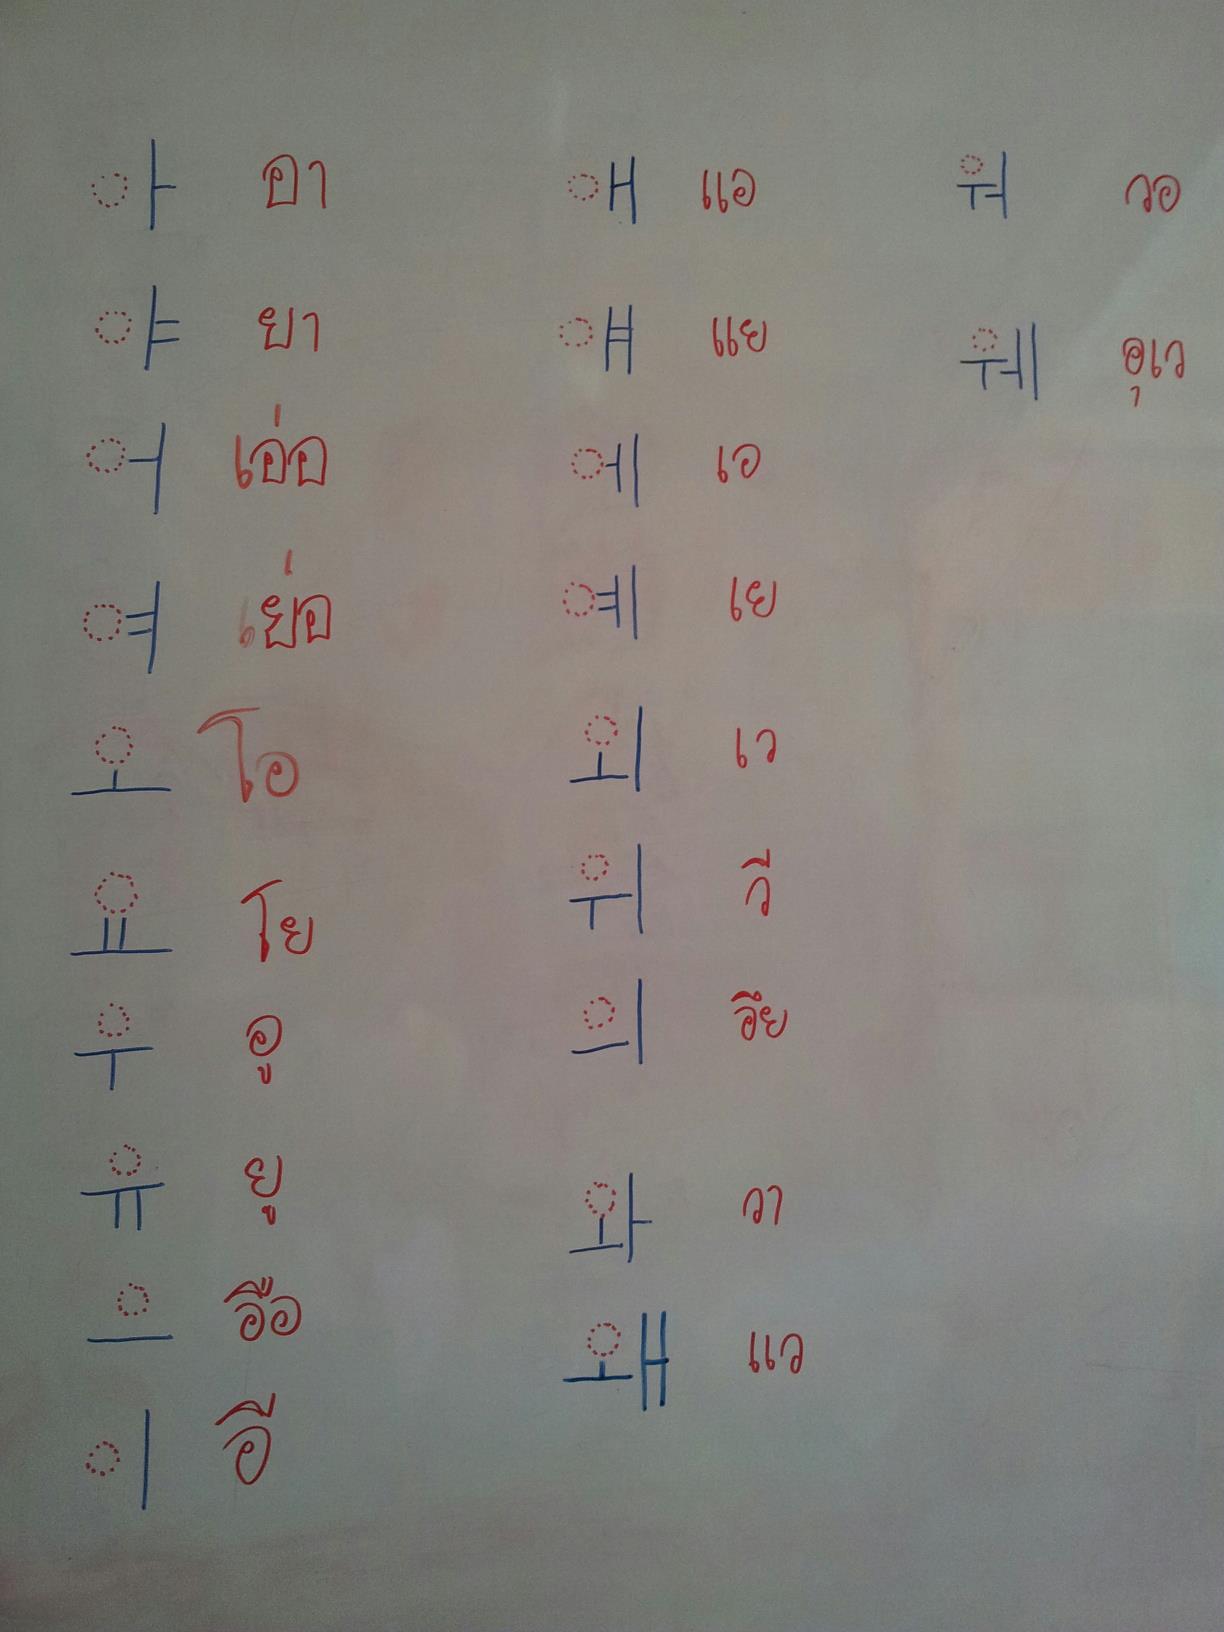 아 อา
야 ยา
어 เอ่อ
여 เย่อ
오 โอ
요 โย
우 อู
유 ยู
으 อือ
이 อี
애 แอ
얘 แย
에 เอ
예 เย
외 เว
위 วี
의 อึย
와 วา
왜 แว
워 วอ
웨 อุเว